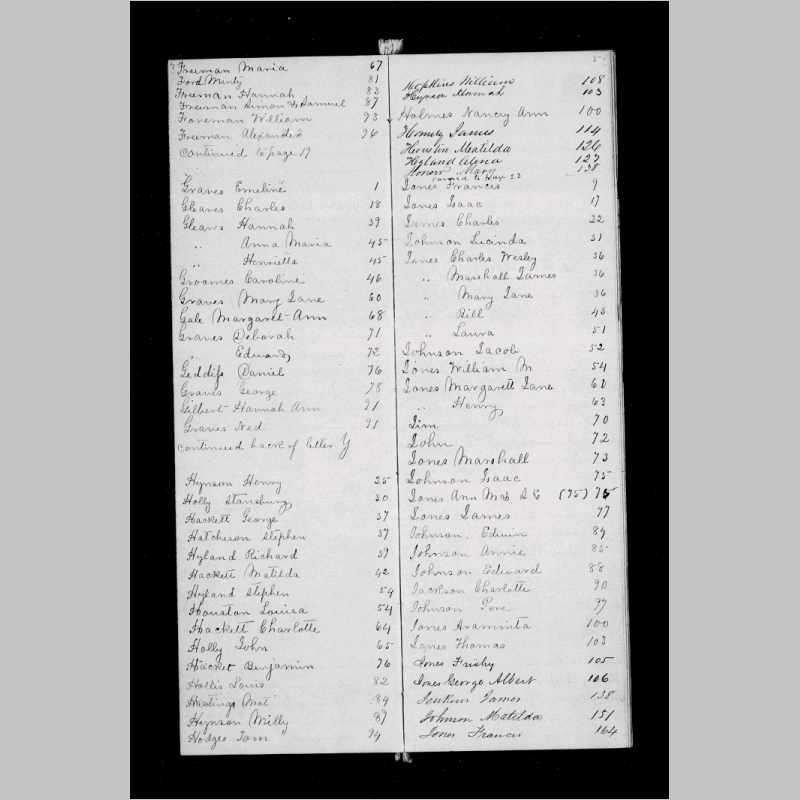 Freeman Maria 67
Ford Minty 81
Freeman Hannah 82
Freeman Simon & Samuel 87
Foreman William 93
Freeman Alexander 96
continued to page 19
Graves Emeline 1
Gleaves Charles 18
Gleaves Hannah 39
" Anna Maria 45
" Henrietta 45
Groomes Caroline 46
Graves Mary Jane 60
Gale Margaret Ann 68
Graves Deborah 71
" Edward 72
Geddifs Daniel 76
Graves George 78
Gilbert Hannah Ann 91
Graves Ned 91
continued back of letter Y
Hynson Henry 25
Holly Stansbury 30
Hackett George 37
Hatcheson Stephen 37
Hyland Richard 39
Hackett Matilda 42
Hyland Stephen 54
Houston Louisa 54
Hackett Charlotte 64
Holly John 65
Hacket Benjamin 76
Hollis Louis 82
Hastings Mat 84
Hynson Milly 87
Hodges Tom 94
Hopkins William 108
Hynson 103
Holmes Nancy Ann 100
James 114
Houstin Matilda 126
Hyland 127
Mary 138
Jones Frances 9
Jones Isaac 17
James Charles 22
Johnson Lucinda 31
Jones Charles Wesley 36
" Marshall James 36
" Mary Jane 36
" Bill 43
" Laura 51
Johnson Jacob 52
Jones William M 54
Jones Margarett Jane 60
" Henry 63
Jim 70
John 72
Jones Marshall 73
Johnson Isaac 75
Jones Ann Mrs (75) 75
Jones James 77
Johnson Edwin 84
Johnson Annie 85
Johnson Edward 88
Jackson Charlotte 90
Johnson Pere 97
Jones Araminta 100
Jones Thomas 103
Jones Frisby 105
Jones George Albert 106
Jenkins James 138
Johnson Matilda 151
Jones Francis 164